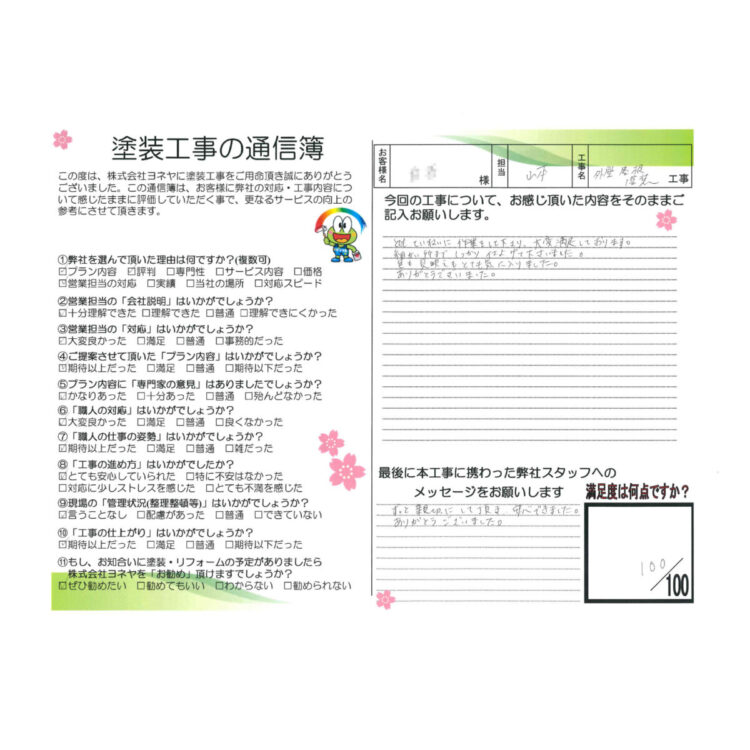 塗装工事の通信簿
この度は、株式会社ヨネヤに塗装工事をご用命頂き誠にありがとう
ございました。この通信簿は、お客様に弊社の対応・工事内容につ
いて感じたままに評価していただく事で、更なるサービスの向上の
参考にさせて頂きます。
①弊社を選んで頂いた理由は何ですか?(複数可)
☑プラン内容 ☑評判 □専門性 □サービス内容 □価格
☑営業担当の対応 □実績 □当社の場所 □対応スピード
②営業担当の「会社説明」はいかがでしょうか?
☑十分理解できた □理解できた □普通 □理解できにくかった
③営業担当の「対応」はいかがでしょうか?
☑大変良かった □満足 □普通 □事務的だった
④ご提案させて頂いた「プラン内容」はいかがでしょうか?
☑期待以上だった □満足 □普通 □期待以下だった
⑤プラン内容に「専門家の意見」はありましたでしょうか?
☑かなりあった □十分あった □普通 □殆んどなかった
⑥「職人の対応」はいかがでしょうか?
☑大変良かった □満足 □普通 □良くなかった
⑦「職人の仕事の姿勢」はいかがでしょうか?
☑期待以上だった □満足 □普通 □雑だった
⑧「工事の進め方」はいかがでしたか?
☑とても安心していられた □特に不安はなかった
□対応に少しストレスを感じた □とても不満を感じた
⑨現場の「管理状況(整理整頓等)」はいかがでしょうか?
☑言うことなし □配慮があった □普通 □できていない
⑩「工事の仕上がり」はいかがでしょうか?
☑期待以上だった □満足 □普通 □期待以下だった
⑪もし、お知合いに塗装・リフォームの予定がありましたら
株式会社ヨネヤを「お勧め」頂けますでしょうか?
☑ぜひ勧めたい □勧めてもいい □わからない □勧められない
お客様名 様 担当 山本 工事名 外壁 屋根 塗装 工事
今回の工事について、お感じ頂いた内容をそのままご
記入お願いします。
とてもていねいに作業をして下さり、大変満足しております。
細かい所までしっかり仕上げて下さいました。
見た目もとても気に入りました。
ありがとうございました。
最後に本工事に携わった弊社スタッフへの
メッセージをお願いします
ずっと親切にして頂き
ありがとうございました。
満足度は何点ですか?
100/100